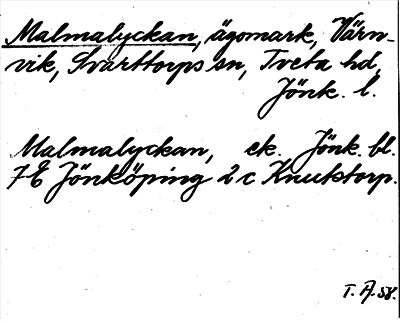 Malmalyckan, ägomark, Värn-
vik, Svarttorps sn, Tveta hd,
Jönk. l.
Malmalyckan, ek. Jönk. bl.
7E Jönköping 2 c Knutstorp.
T. A. 58.